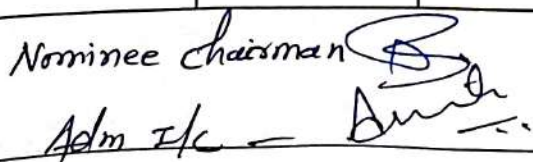 Nominee Chairman
Adm I/c -